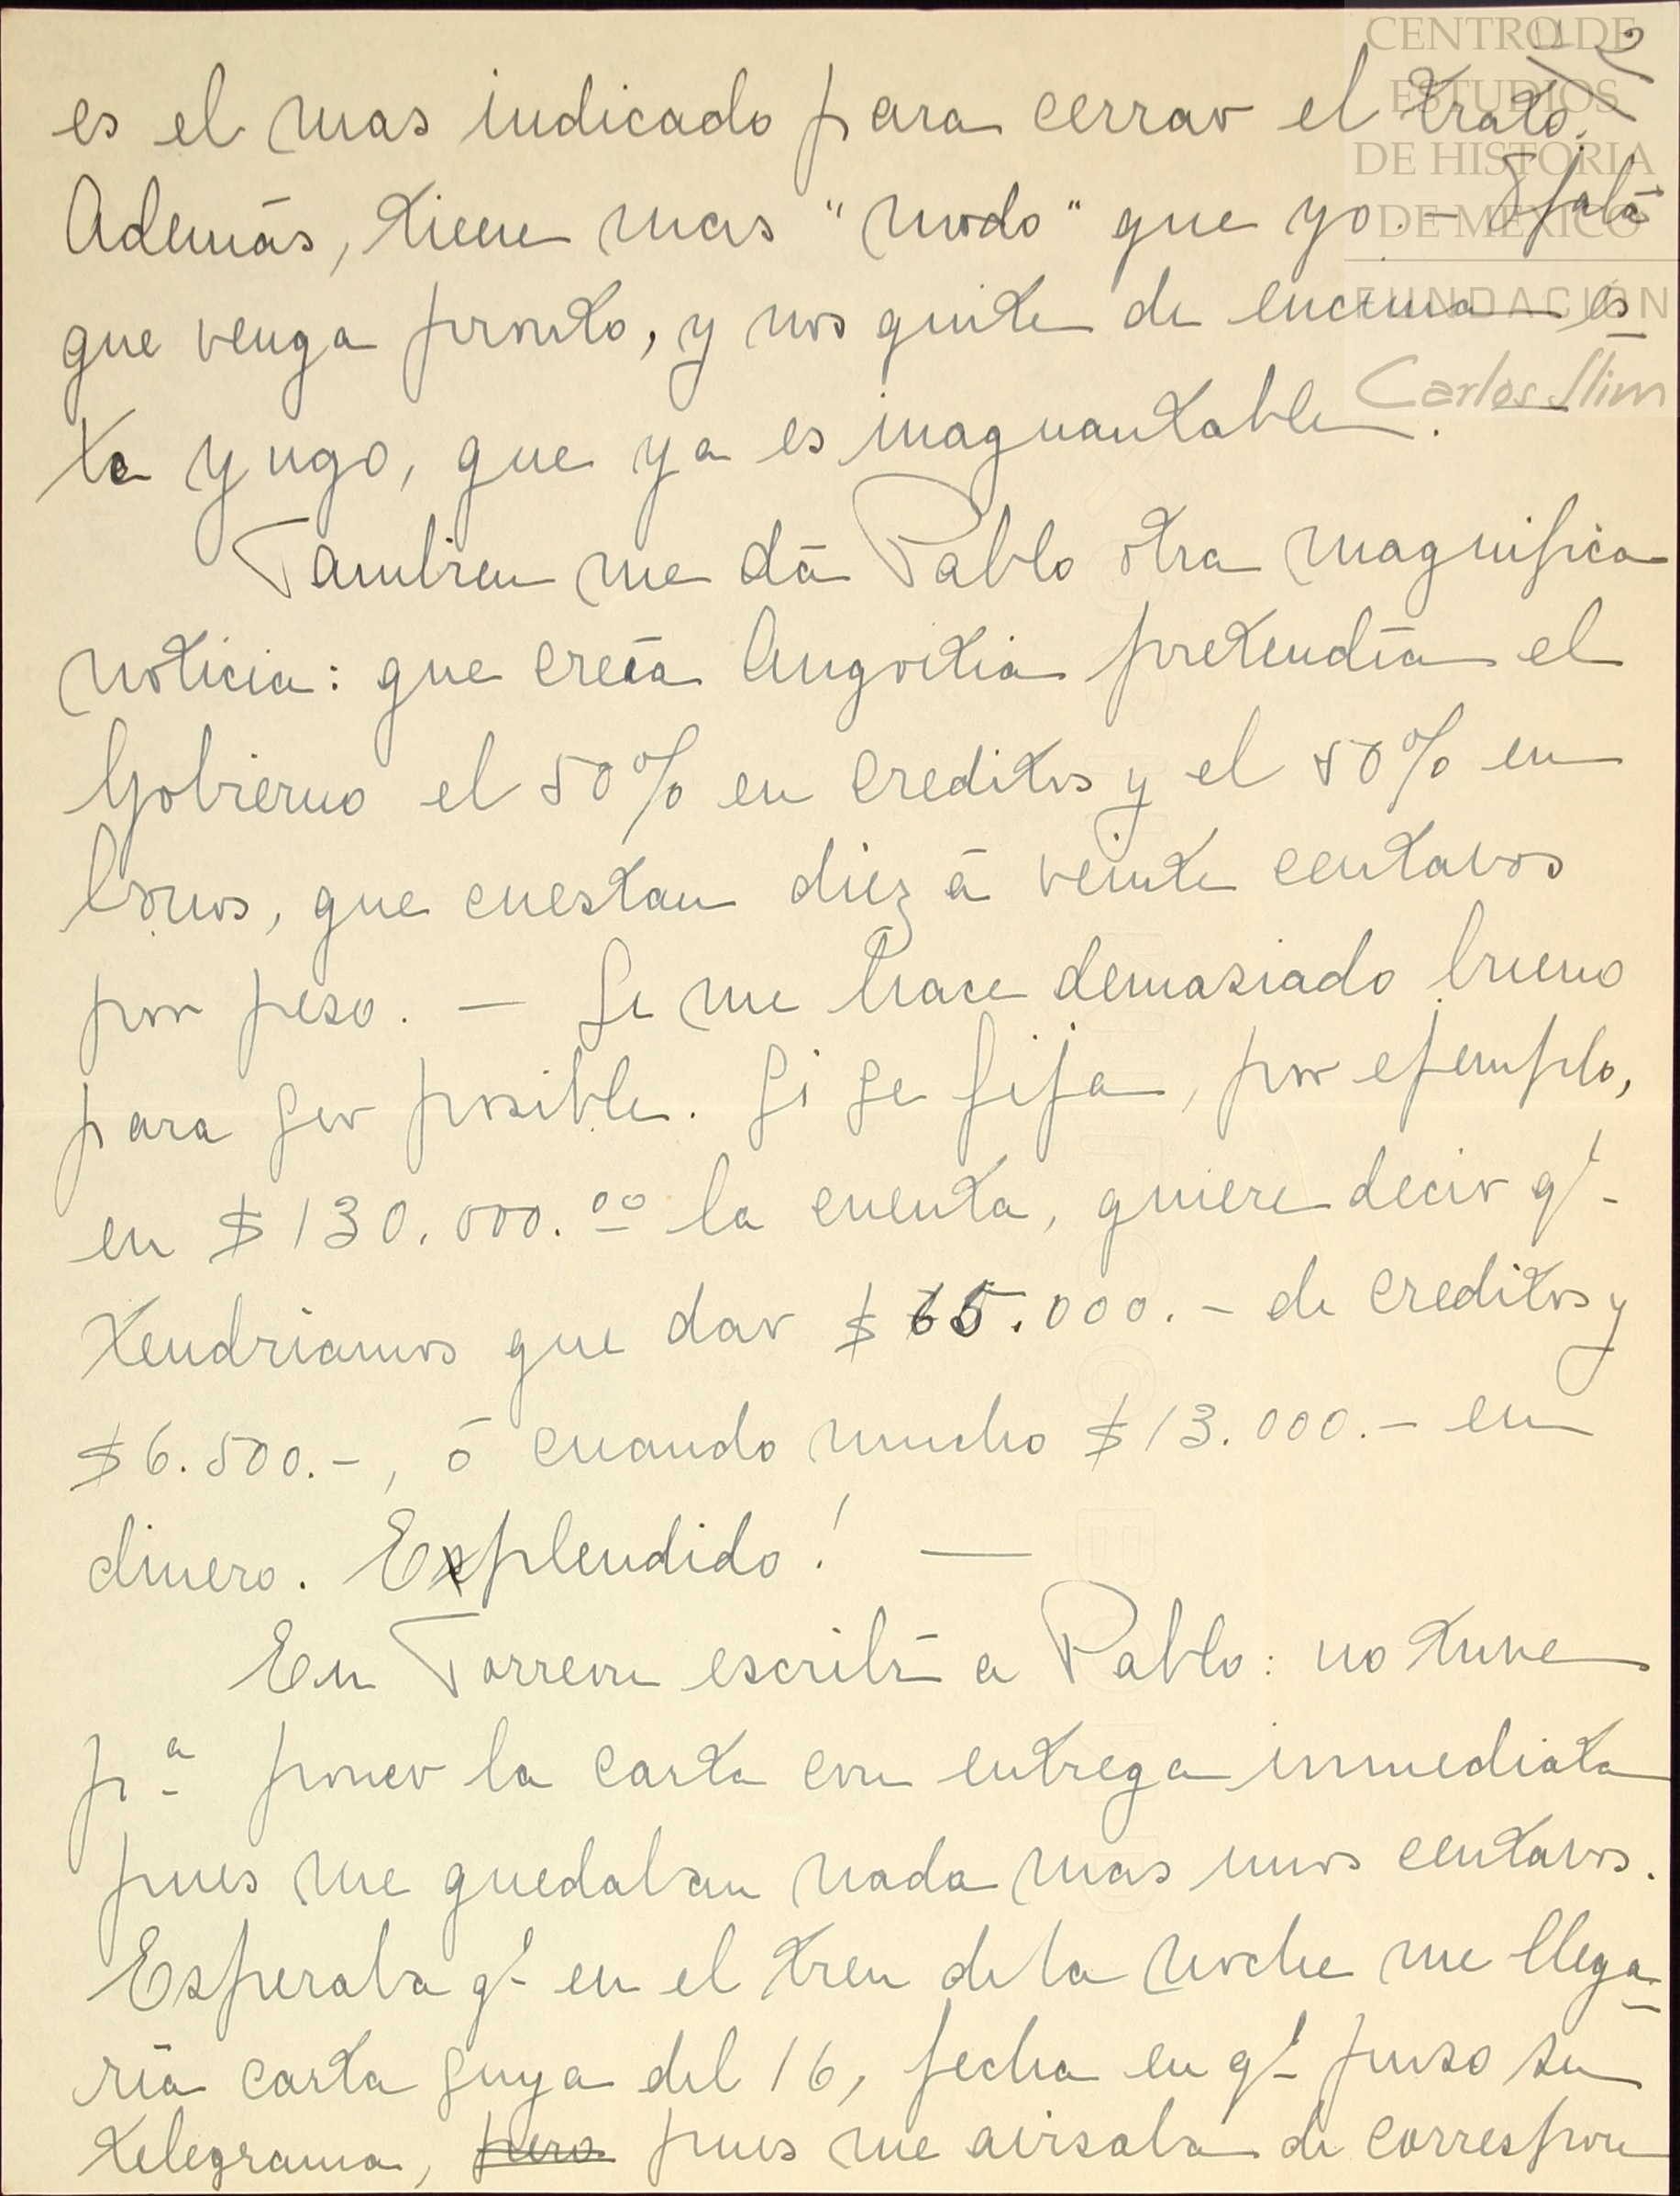 CENTRO DE
ESTUDIOS
DE HISTORIA
DE MEXICO
FUNDACIÓN
Carlos Slim
es el mas indicado para cerrar el trato.
Además, tiene mas "modo" que yo. - Ojalá
que venga pronto, y nos quite de encima es-
te yugo, que ya es inaguantable.
Tambien me dá Pablo otra magnifica
noticia: que creía Angoitia pretendía el
Gobierno el 50% en creditos y el 50% en
bonos, que cuestan diez á veinte centavos
por peso. — Se me hace demasiado bueno
para ser posible. Si se fija, por ejemplo,
en $130.000.00 la cuenta, quiere decir q'-
tendriamos que dar $65.000.- de creditos y
$6.500.-, ó cuando mucho $13.000.- en
dinero. Explendido! —
En Torreon escribí a Pablo: no tuve
pª poner la carta con entrega inmediata
pues me quedaban nada mas unos centavos.
Esperaba q'- en el tren de la noche me llega-
ría carta suya del 16, fecha en q'- puso su
telegrama, pero pues me avisaba de correspon